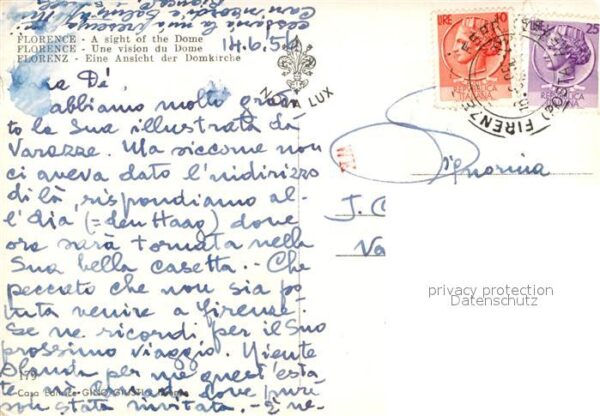 FLORENCE - A sight of the Dome
FLORENCE - Une vision du Dome
FLORENZ - Eine Ansicht der Domkirche
14.6.54
Cara Dé,
abbiamo molto gradi
to la Sua illustrata da
Varazze. Ma siccome non
ci aveva dato l'indirizzo
di là, rispondiamo al-
l'Aia (= den Haag) dove
ora sarà tornata nella
Sua bella casetta. - Che
peccato che non sia po
tuta venire a Firenze
Se ne ricordi per il Suo
prossimo viaggio. Niente
Olanda per me quest'esta
te
sono stata invitata. - È ne-
179
Casa Editrice GINO GIUSTI
LUX
LIRE 10
25
FIRENZE
(POSTA
Signorina
J. C
Va
privacy protection
Datenschutz